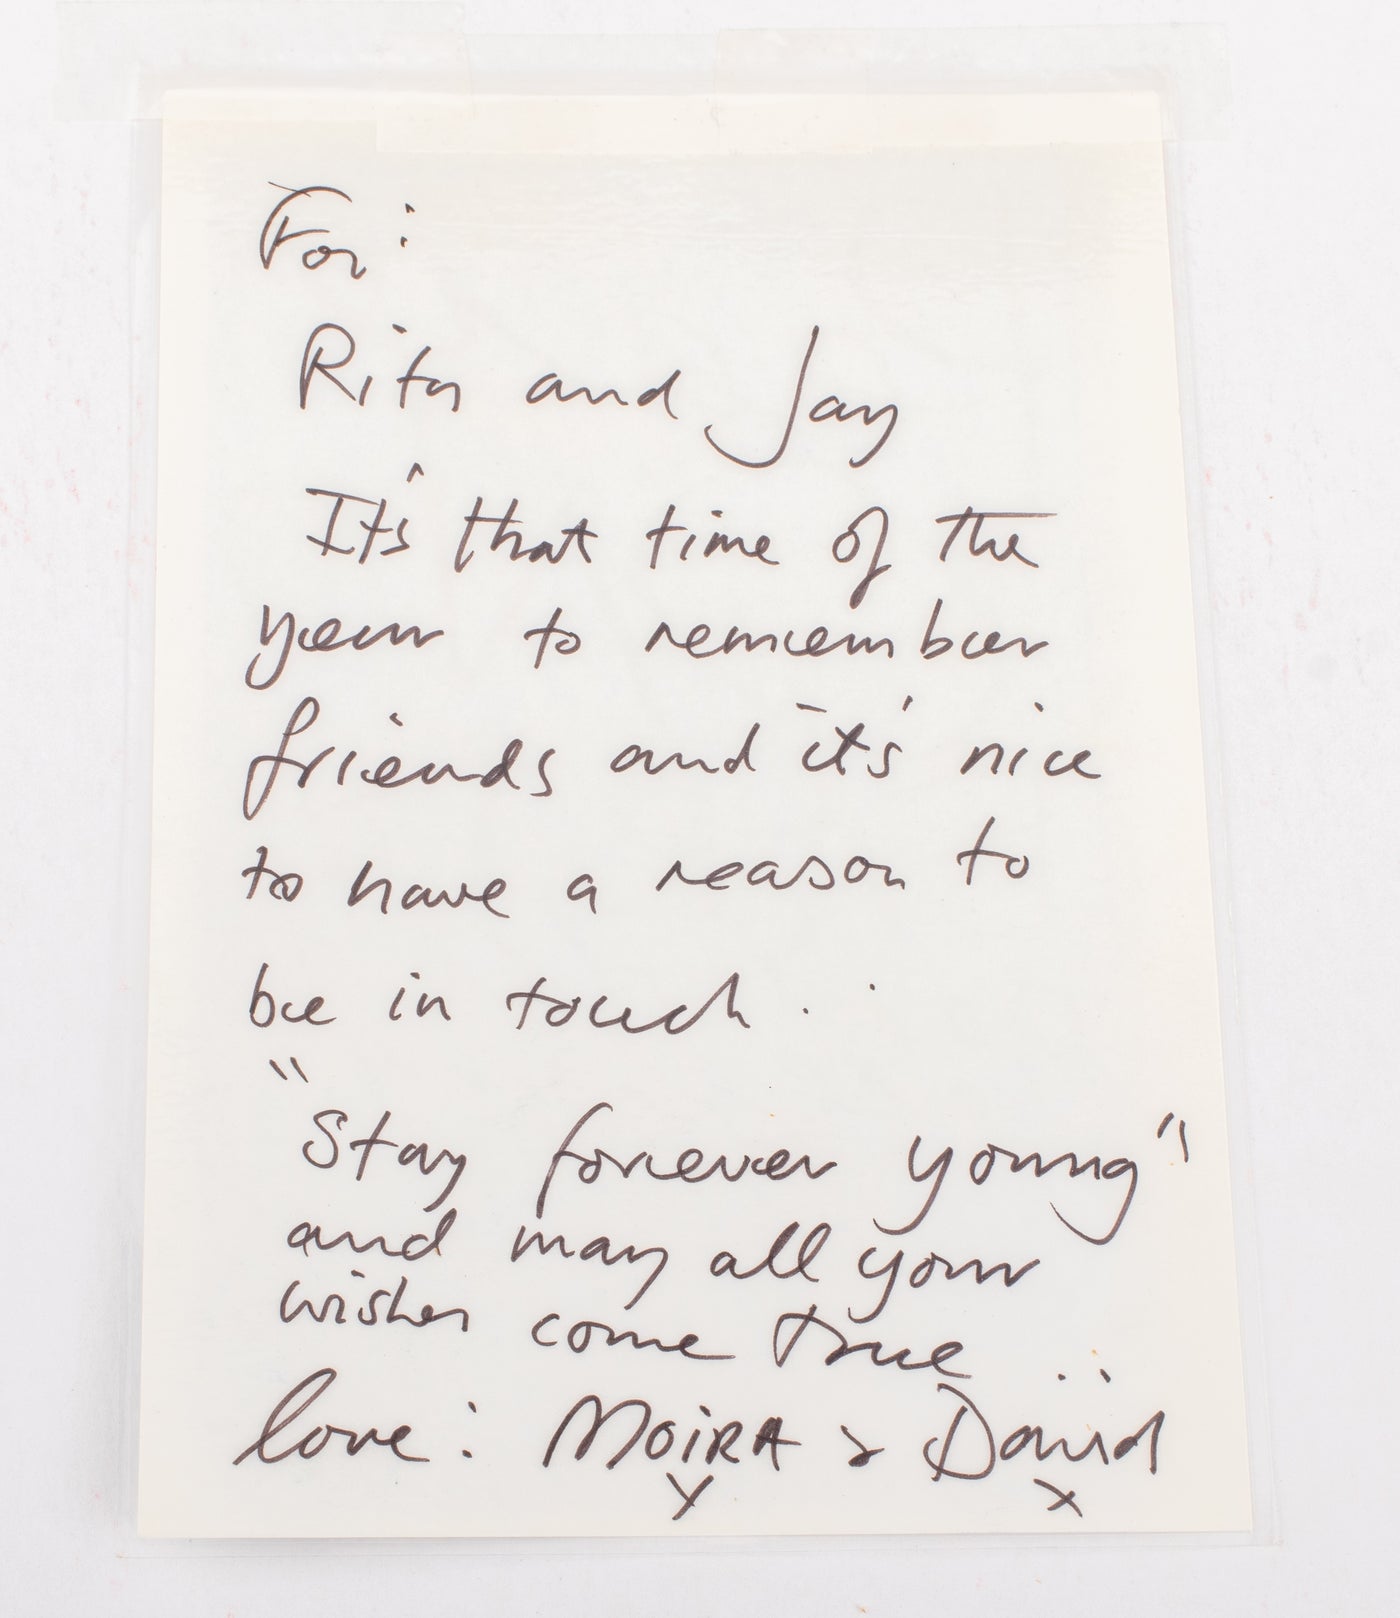 For:
Rita and Jay
It's that time of the
year to remember
friends and it's nice
to have a reason to
be in touch. .
"Stay forever young"
and may all your
wishes come true ..
love: MOIRA & David
x x